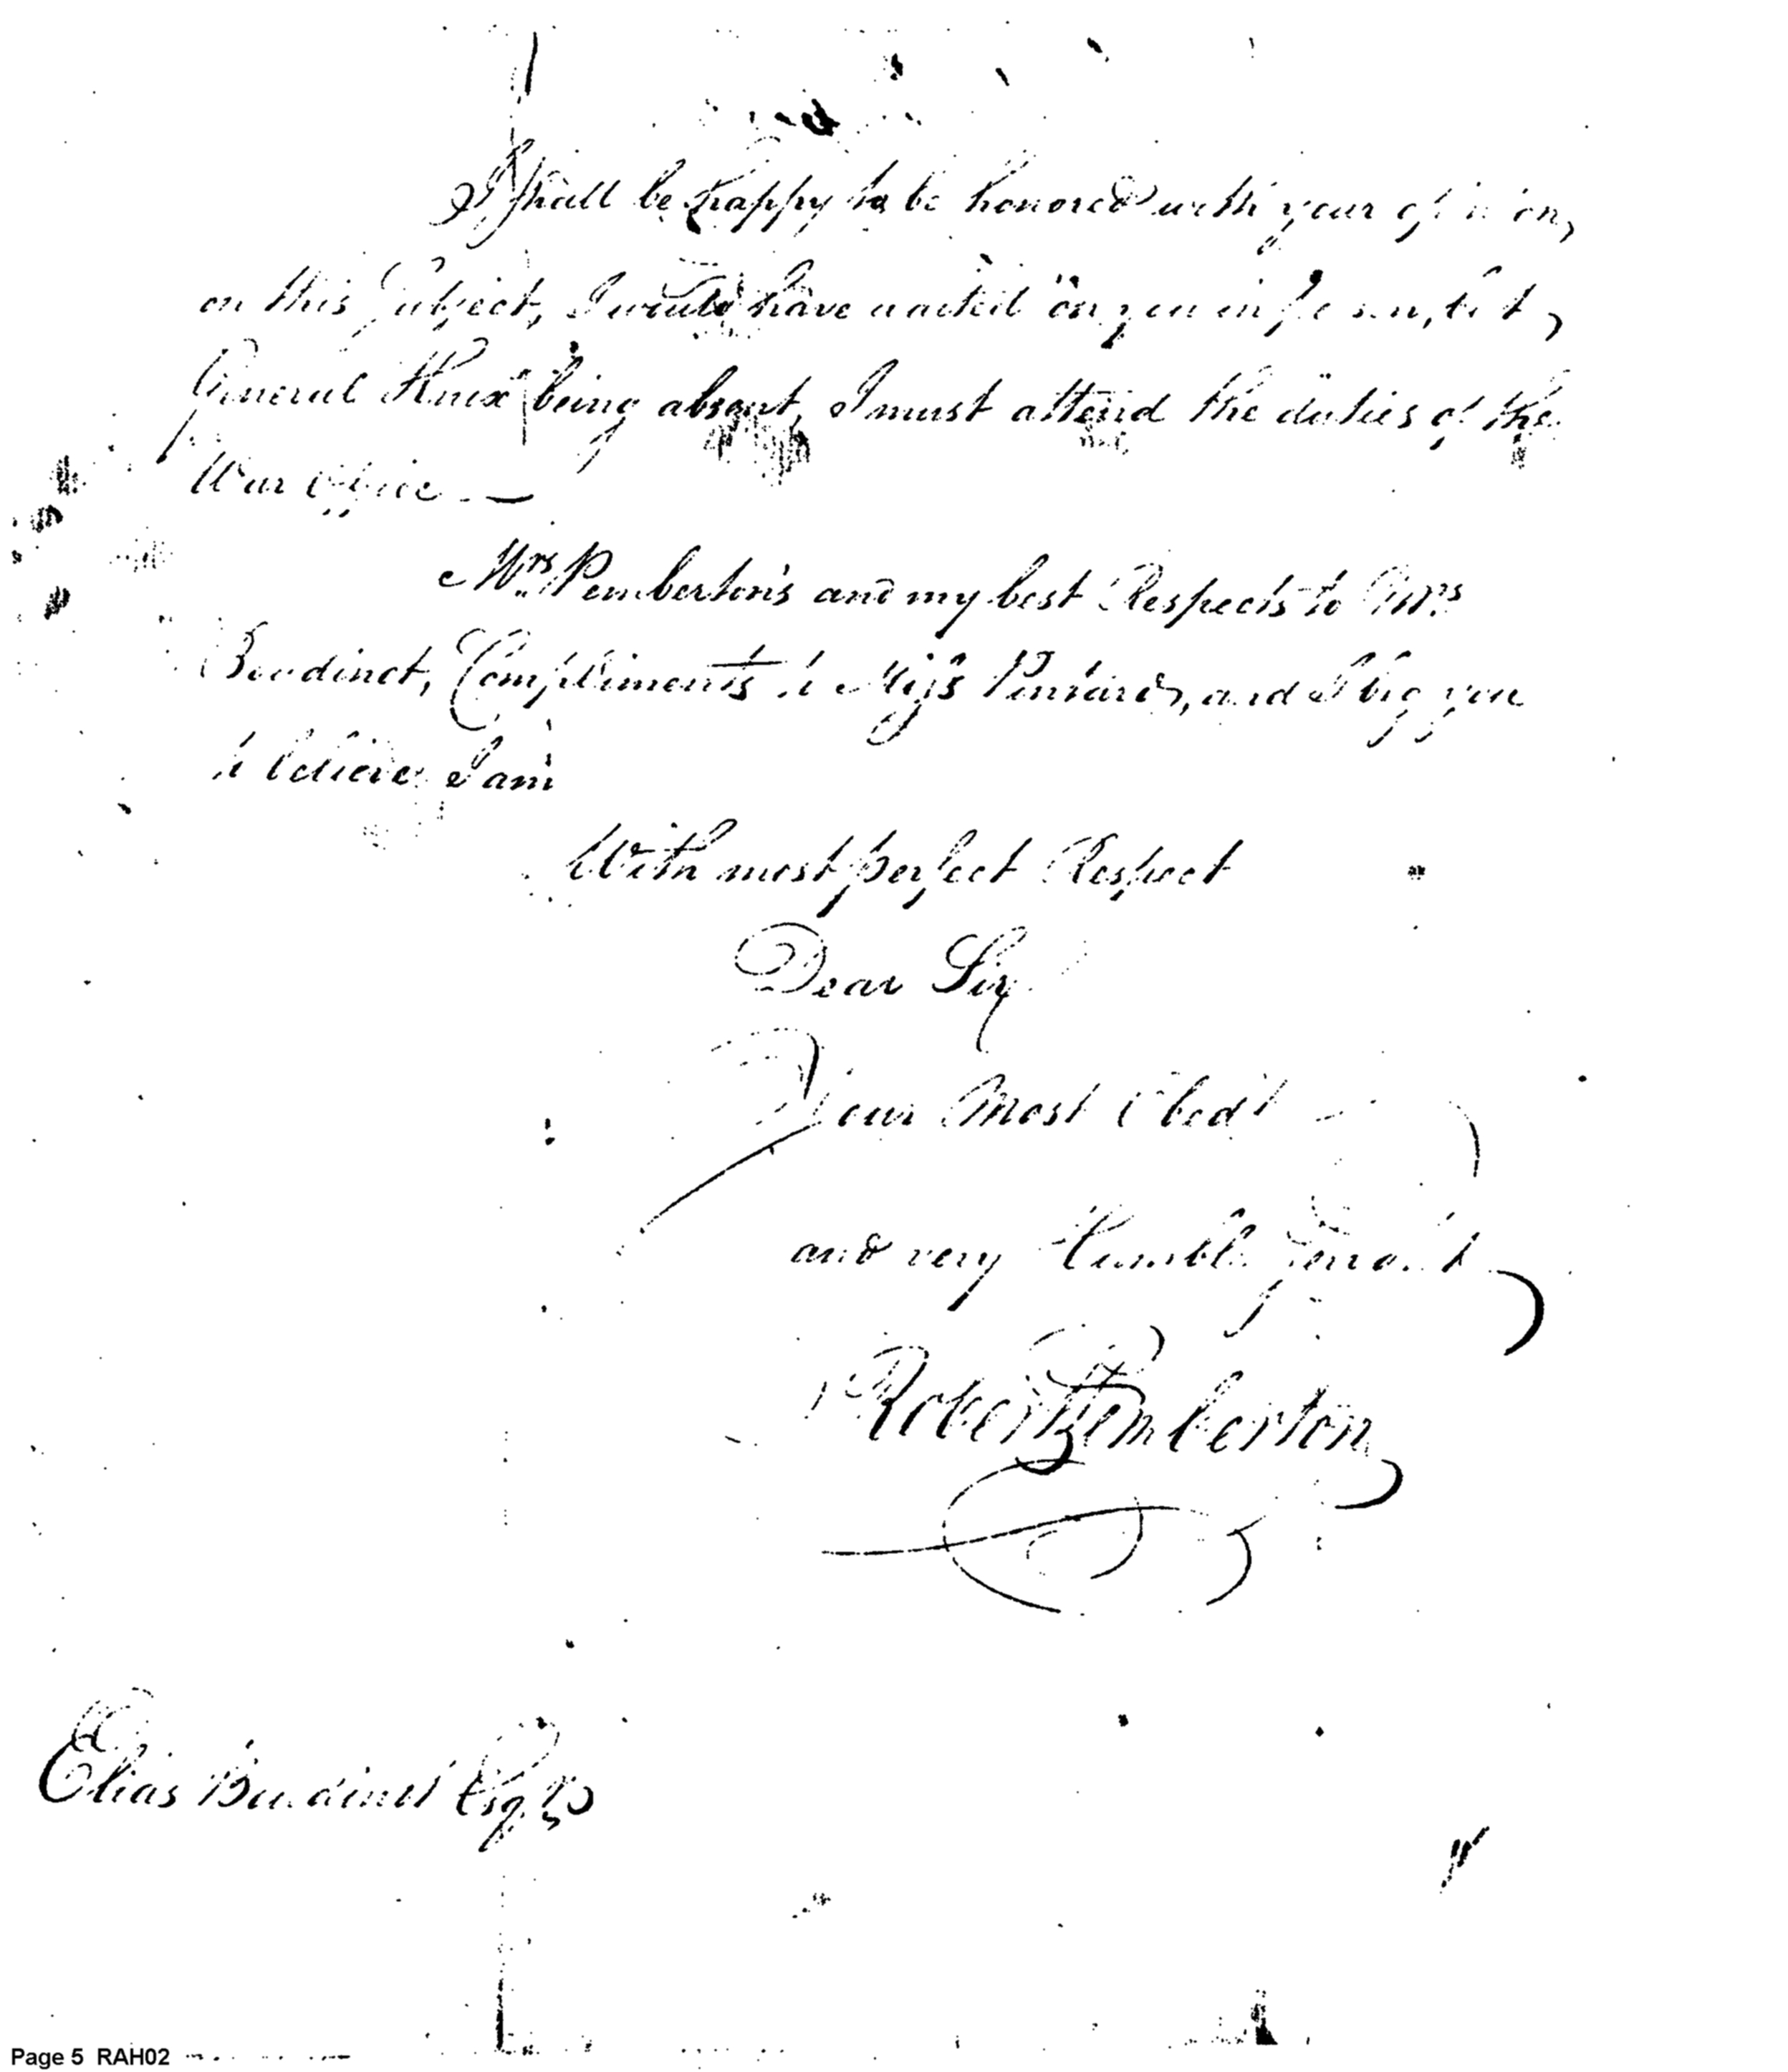 I shall be happy to be honored with your opinion,
on this Subject, I would have waited on you in person, but,
General Knox being absent, I must attend the duties of the
War Office —
Mrs Pemberton's and my best Respects to Mrs
Boudinot, Compliments to Miss Pintard, and I beg you
to believe I am
With most perfect Respect
Dear Sir
Your Most Obedt
and very Humble Servant
Robert Pemberton
Elias Boudinot Esqr
Page 5 RAH02